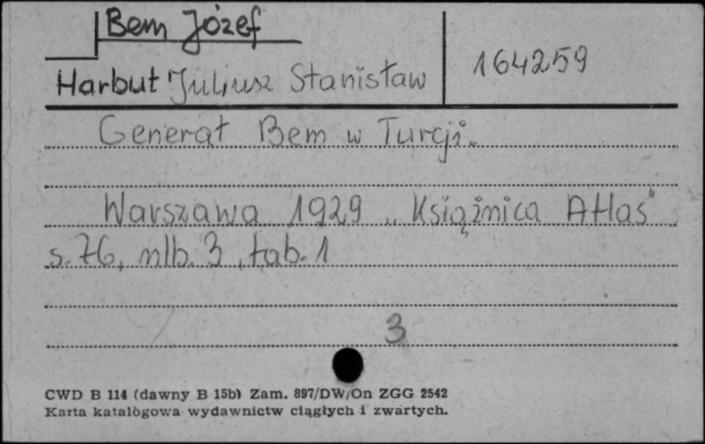 Bem Józef
Harbut Juliusz Stanisław
164259
Generał Bem w Turcji.
Warszawa 1929 „Książnica Atlas"
s. 76, nlb. 3, tab. 1
3
CWD B 114 (dawny B 15b) Zam. 897/DW/On ZGG 2542
Karta katalogowa wydawnictw ciągłych i zwartych.